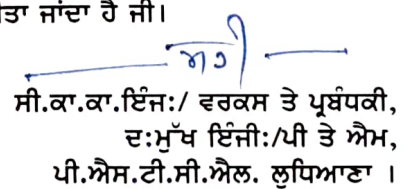 ਤਾ ਜਾਂਦਾ ਹੈ ਜੀ।
ਸਹੀ
ਸੀ.ਕਾ.ਕਾ.ਇੰਜ:/ ਵਰਕਸ ਤੇ ਪ੍ਰਬੰਧਕੀ,
ਦ:ਮੁੱਖ ਇੰਜੀ:/ਪੀ ਤੇ ਐਮ,
ਪੀ.ਐਸ.ਟੀ.ਸੀ.ਐਲ. ਲੁਧਿਆਣਾ ।